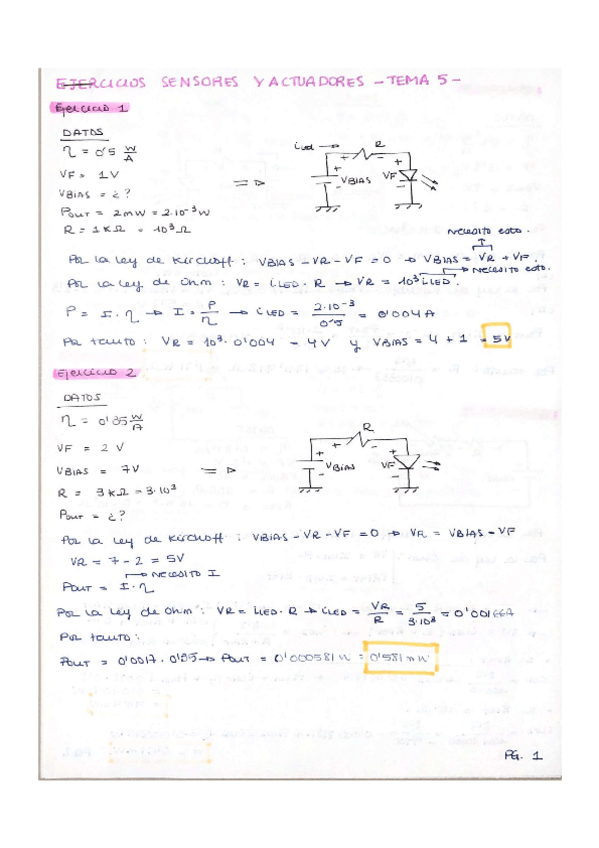 EJERCICIOS SENSORES Y ACTUADORES - TEMA 5 -
Ejercicio 1
DATOS
η = 0'5 W/A
VF = 1V
VBIAS = ¿?
POUT = 2mW = 2·10⁻³W
R = 1KΩ = 10³Ω
iLED → R
+ -
+ VBIAS - VF + -
Necesito esto.
Por la ley de Kirchoff : VBIAS - VR - VF = 0 → VBIAS = VR + VF.
→ Necesito esto.
Por la ley de Ohm : VR = iLED · R → VR = 10³ iLED.
P = I · η → I = P/η → iLED = 2·10⁻³/0'5 = 0'004A
Por tanto : VR = 10³ · 0'004 = 4V y VBIAS = 4 + 1 = 5V
Ejercicio 2
DATOS
η = 0'35 W/A
VF = 2 V
VBIAS = 7V
R = 3KΩ = 3·10³
POUT = ¿?
R
+ -
+ VBIAS - VF + -
Por la ley de Kirchoff : VBIAS - VR - VF = 0 → VR = VBIAS - VF
VR = 7 - 2 = 5V
→ NECESITO I
POUT = I · η
Por la ley de Ohm : VR = iLED · R → iLED = VR/R = 5/3·10³ = 0'00166A
Por tanto :
POUT = 0'0017 · 0'35 → POUT = 0'000581 W = 0'581 mW
PG. 1